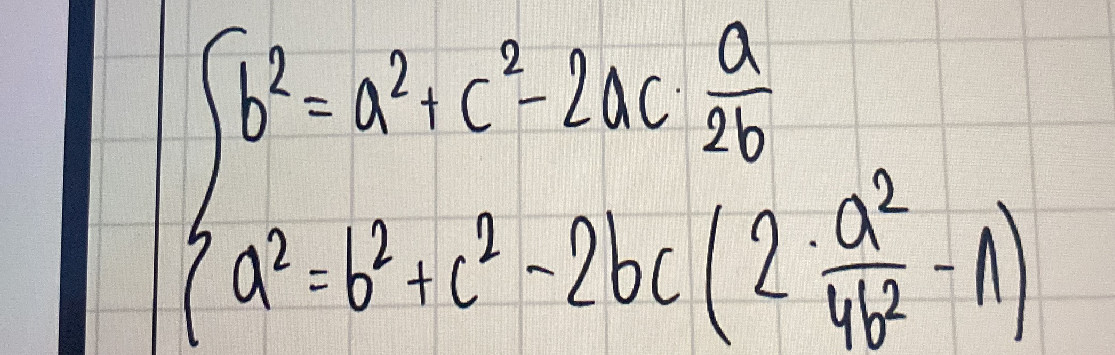 b² = a² + c² - 2ac · a/2b
a² = b² + c² - 2bc (2 · a²/4b² - 1)